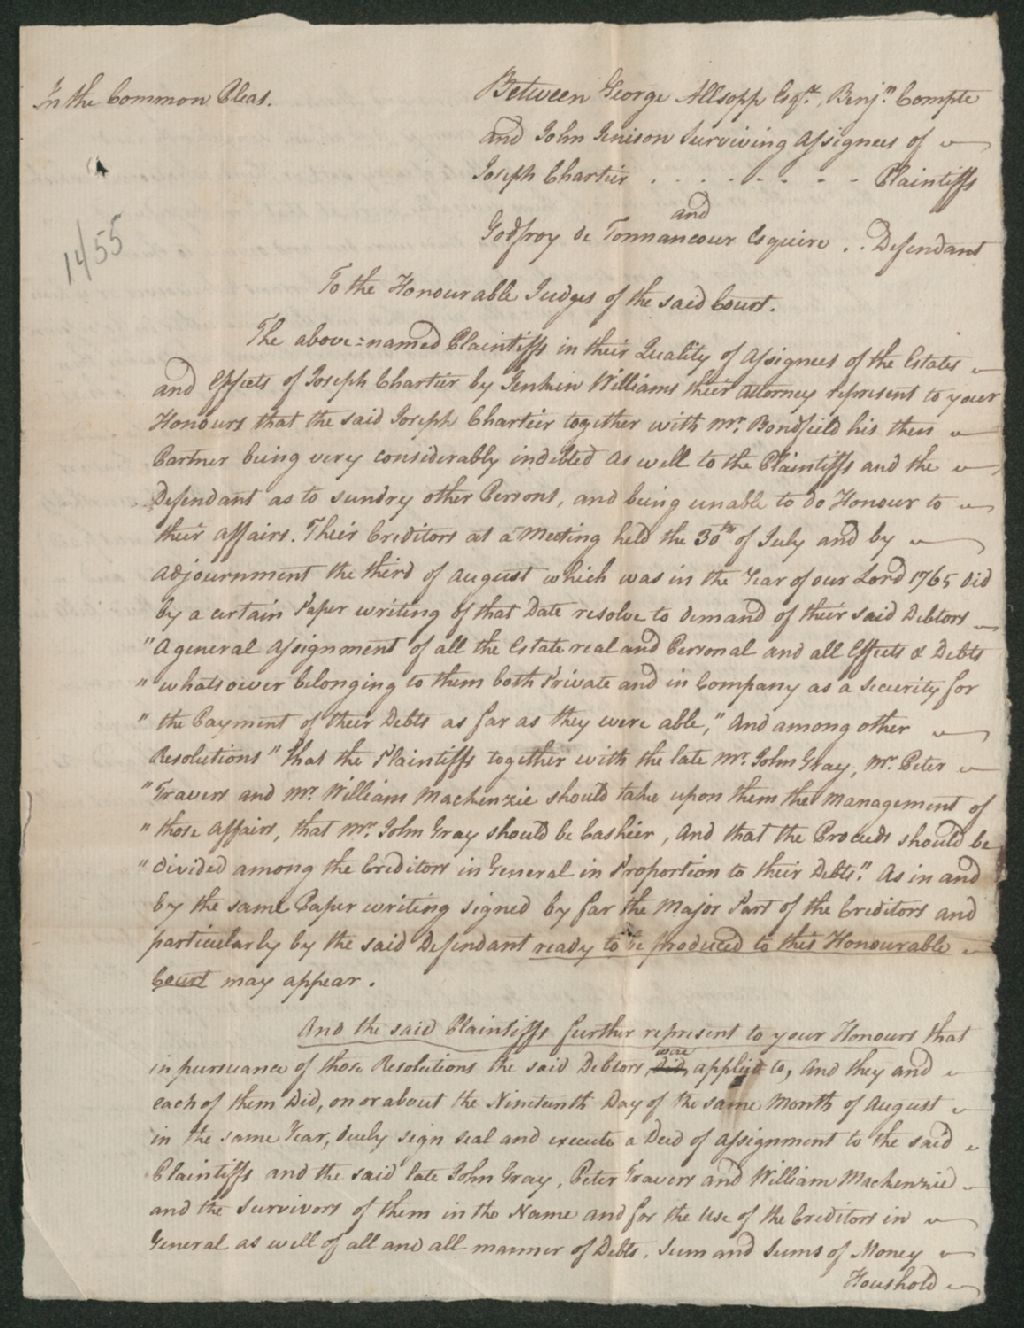 In the Common Pleas.
Between George Allsopp Esqr., Benjn. Compte
and John Jenison Surviving Assignees of
Joseph Chartier . . . . . . . . Plaintiffs
and
Godfroy de Tonnancour Esquire . . Defendant
11/55
To the Honourable Judges of the said Court.
The above=named Plaintiffs in their Quality of Assignees of the Estates
and Effects of Joseph Chartier by Jenkin Williams their Attorney represent to your
Honours that the said Joseph Chartier together with Mr. Bondfield his then
Partner being very considerably indebted as well to the Plaintiffs and the
Defendant as to sundry other Persons, and being unable to do Honour to
their affairs. Their Creditors at a Meeting held the 30th of July and by
Adjournment the third of August which was in the Year of our Lord 1765 did
by a certain Paper writing of that Date resolve to demand of their said Debtors
"A general Assignment of all the Estate real and Personal and all Effects & Debts
"whatsoever belonging to them both Private and in Company as a Security for
"the Payment of their Debts as far as they were able," And among other
Resolutions "that the Plaintiffs together with the late Mr. John Gray, Mr. Peter
"Travers and Mr. William Mackenzie should take upon them the Management of
"those Affairs, that Mr. John Gray should be Cashier, And that the Proceeds should be
"divided among the Creditors in General in Proportion to their Debts." As in and
by the same Paper writing signed by far the Major Part of the Creditors and
particularly by the said Defendant ready to be produced to this Honourable
Court may appear.
And the said Plaintiffs further represent to your Honours that
in pursuance of those Resolutions the said Debtors did were applied to, And they and
each of them Did, on or about the Nineteenth Day of the same Month of August
in the same Year, duely sign seal and execute a Deed of Assignment to the said
Plaintiffs and the said late John Gray, Peter Travers and William Mackenzie
and the Survivors of them in the Name and for the Use of the Creditors in
General as well of all and all manner of Debts, Sum and Sums of Money
Houshold